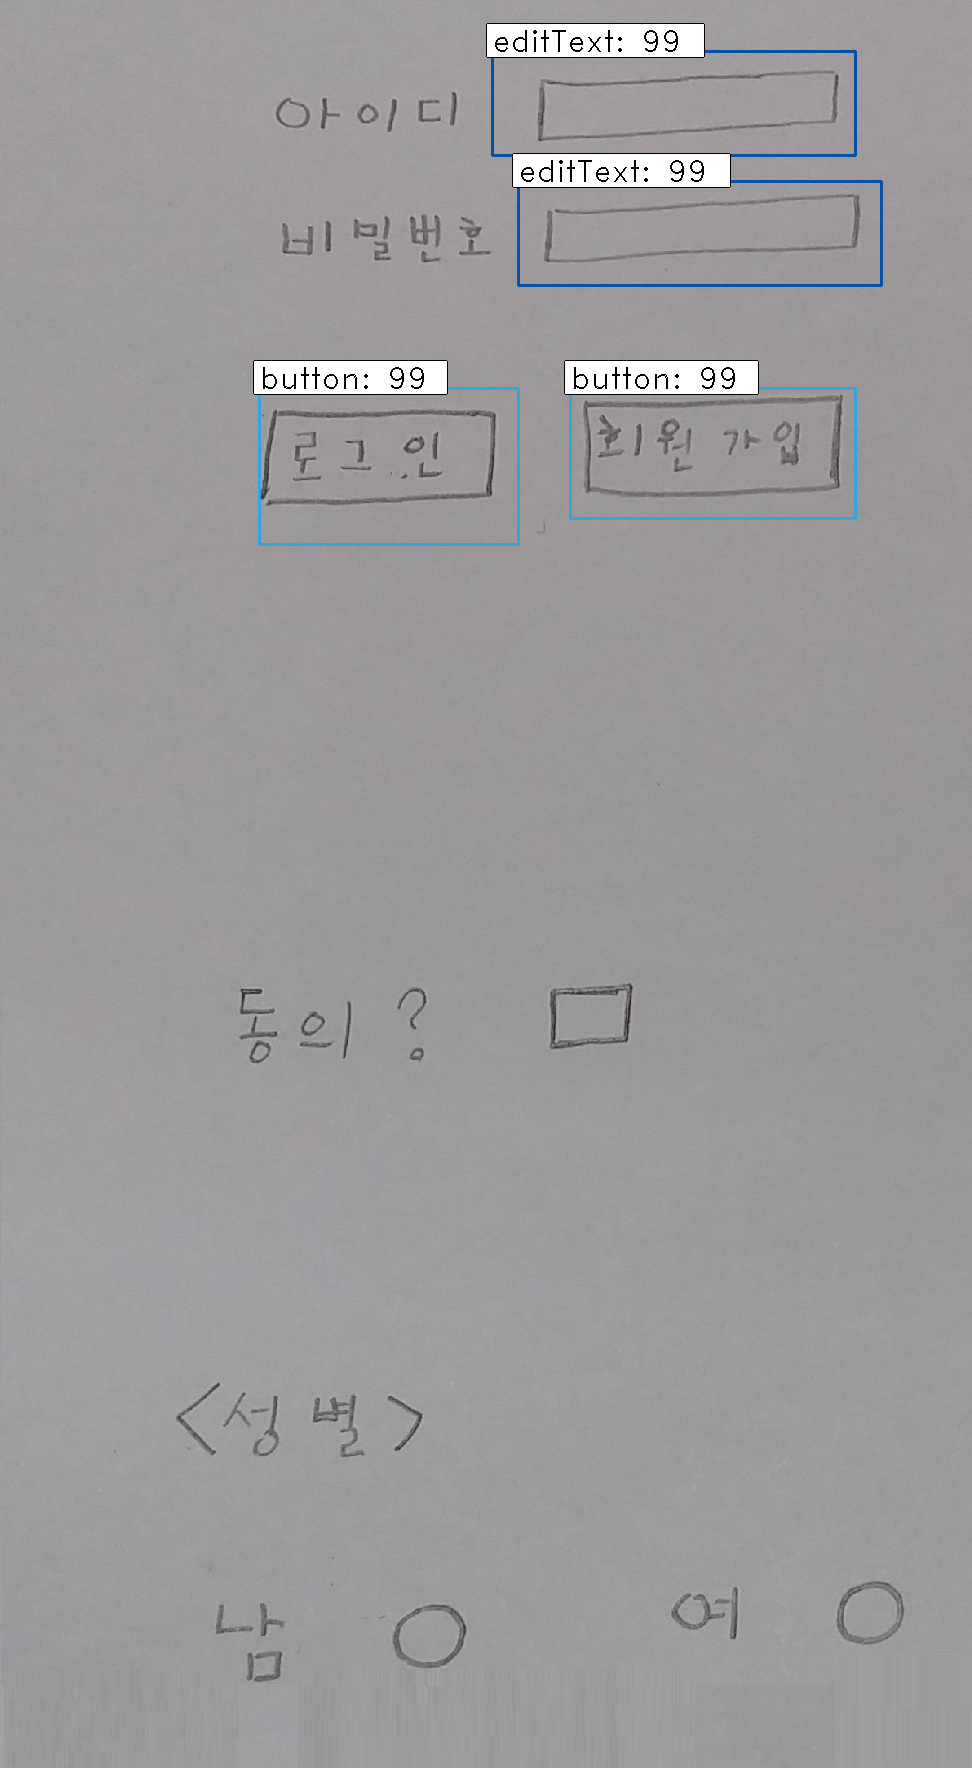 editText: 99
아이디
editText: 99
비밀번호
button: 99 button: 99
로그인 회원가입
동의?
<성별>
남 여